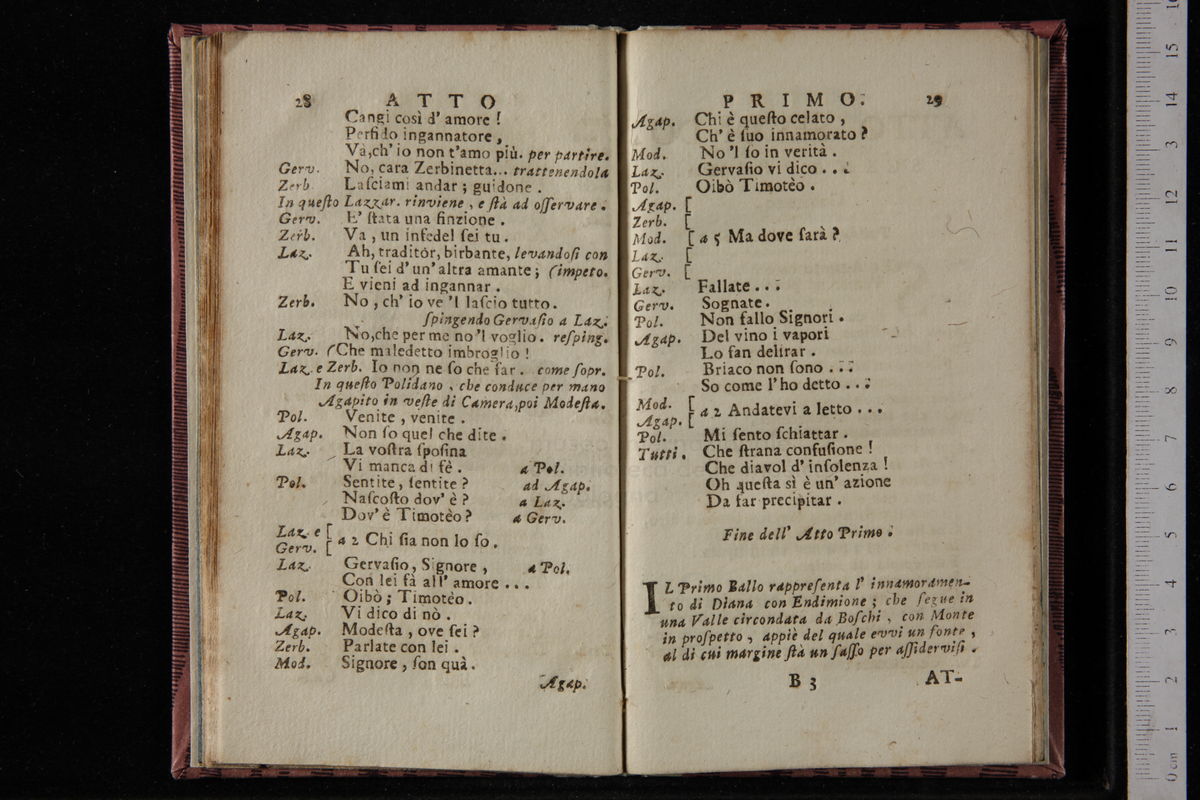 28 ATTO
Cangi così d' amore !
Perfido ingannatore ,
Va,ch' io non t'amo più. per partire.
Gerv. No, cara Zerbinetta... trattenendola
Zerb. Laſciami andar ; guidone .
In queſto Lazzar. rinviene , e ſtà ad oſſervare .
Gerv. E' ſtata una finzione .
Zerb. Va , un infedel ſei tu .
Laz. Ah, traditór, birbante, levandoſi con
Tu ſei d' un' altra amante ; (impeto.
E vieni ad ingannar .
Zerb. No , ch' io ve 'l laſcio tutto .
ſpingendo Gervaſio a Laz.
Laz. No,che per me no 'l voglio . reſping.
Gerv. (Che maledetto imbroglio !
Laz. e Zerb. Io non ne ſo che far . come ſopr.
In queſto Polidano , che conduce per mano
Agapito in veſte di Camera,poi Modeſta.
Pol. Venite , venite .
Agap. Non ſo quel che dite .
Laz. La voſtra ſpoſina
Vi manca di fè . a Pol.
Pol. Sentite , ſentite ? ad Agap.
Naſcoſto dov' è ? a Laz.
Dov' è Timotèo ? a Gerv.
Laz. e [
Gerv. [ a 2 Chi ſia non lo ſo .
Laz. Gervaſio, Signore , a Pol.
Con lei fà all' amore ...
Pol. Oibò ; Timotèo .
Laz. Vi dico di nò .
Agap. Modeſta , ove ſei ?
Zerb. Parlate con lei .
Mod. Signore , ſon quà .
Agap.
PRIMO. 29
Agap. Chi è queſto celato ,
Ch' è ſuo innamorato ?
Mod. No 'l ſo in verità .
Laz. Gervaſio vi dico ...
Pol. Oibò Timotèo .
Agap. [
Zerb. [
Mod. [ a 5 Ma dove ſarà ?
Laz. [
Gerv. [
Laz. Fallate ...
Gerv. Sognate .
Pol. Non fallo Signori .
Agap. Del vino i vapori
Lo fan delirar .
Pol. Briaco non ſono ...
So come l' ho detto ...
Mod. [
Agap. [ a 2 Andatevi a letto ...
Pol. Mi ſento ſchiattar .
Tutti . Che ſtrana confuſione !
Che diavol d' inſolenza !
Oh queſta sì è un' azione
Da far precipitar .
Fine dell' Atto Primo .
IL Primo Ballo rappreſenta l' innamoramen-
to di Diana con Endimione ; che ſegue in
una Valle circondata da Boſchi , con Monte
in proſpetto , appiè del quale evvi un fonte ,
al di cui margine ſtà un ſaſſo per aſſiderviſi .
B 3 AT-
0 cm 1 2 3 4 5 6 7 8 9 10 11 12 13 14 15